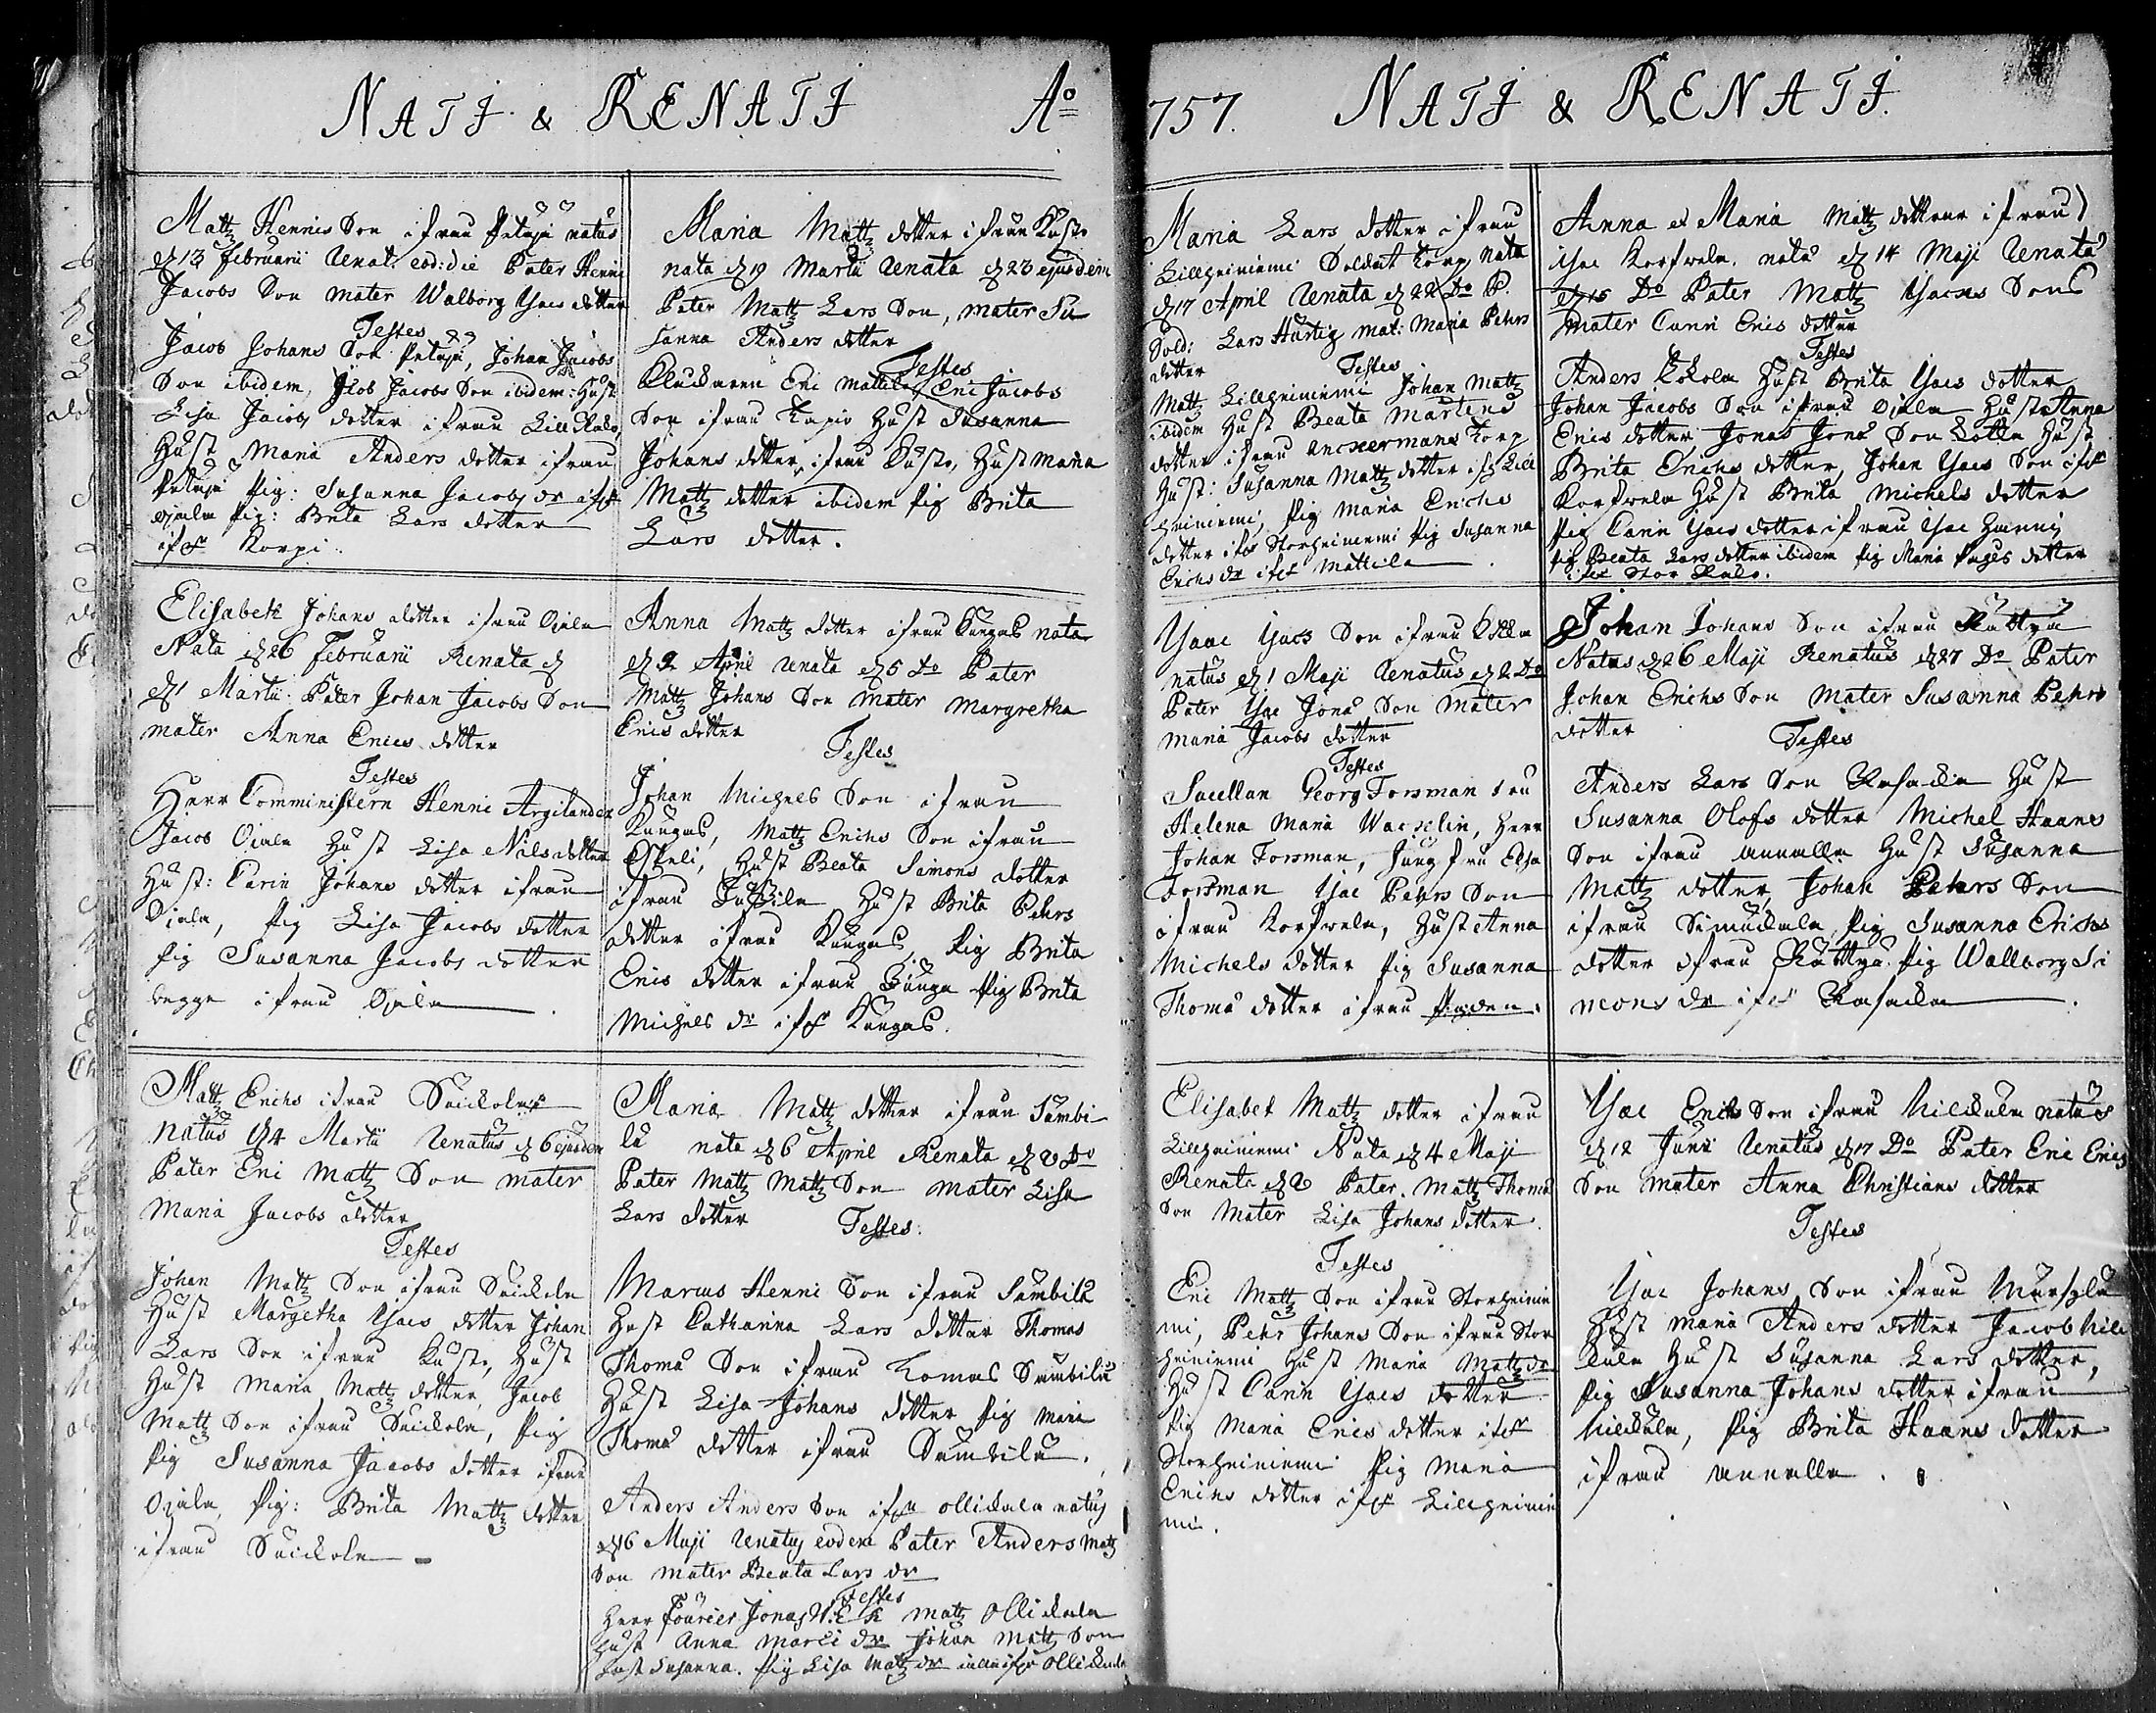 NATI & RENATI Aº
Matz Hennis Son ifrån natus
d 13 Februarii Renat. eod: die Pater Henric
Jacobs Son mater Walborg Isacs dotter
Testes
Jacob Johans Son Johan Jacobs
Son ibidem, Jacobs Son ibidem: Hust
Lisa Jacobs dotter ifrån
Hust Maria Anders dotter ifrån
Pig: Susanna Jacobs dr ifr
Ojala Pig: Brita Lars dotter
ifr Korpi.
Elisabeth Johans dotter ifrån Ojala
Nata d 26 Februarii Renata d
d 1 Martii. Pater Johan Jacobs Son
mater Anna Erics dotter
Testes
Herr Comministern Henric Argilander
Jacob Ojala Hust Lisa Nils dotter
Hust: Carin Johans dotter ifrån
Ojala, Pig Lisa Jacobs dotter
Pig Susanna Jacobs dotter
begge ifrån Ojala
Matz Erichs ifrån
natus d 4 Martii Renatus d 6 ejusdem
Pater Eric Matz Son mater
Maria Jacobs dotter
Testes
Johan Matz Son ifrån
Hust Margetha Isacs dotter Johan
Lars Son ifrån Hust
Hust Maria Matz dotter, Jacob
Matz Son ifrån Pig
Pig Susanna Jacobs dotter ifrån
Ojala, Pig: Brita Matz dotter
ifrån
Maria Matz dotter ifrån
nata d 19 Martii Renata d 23 ejusdem
Pater Matz Lars Son, mater Su
sanna Anders dotter
Testes
Eric Mattila, Eric Jacobs
Son ifrån Hust Susanna
Johans dotter, ifrån Hust Maria
Matz dotter ibidem Pig Brita
Lars dotter.
Anna Matz dotter ifrån Kangas nata
d 2 April Renata d 5 Do Pater
Matz Johans Son mater Margretha
Erics dotter
Testes
Johan Michels Son ifrån
Kangas, Matz Erichs Son ifrån
Hust Beata Simons dotter
ifrån Hust Brita Pehrs
dotter ifrån Kangas, Pig Brita
Erics dotter ifrån Pig Brita
Michels dr ifr Kangas.
Maria Matz dotter ifrån Sämbi
lä nata d 6 April Renata d 8 Do
Pater Matz Matz Son mater Lisa
Lars dotter
Testes.
Marcus Henric Son ifrån Sämbilä
Hust Catharina Lars dotter Thomas
Thomæ Son ifrån Sämbilä
Hust Lisa Johans dotter Pig Maria
Thomæ dotter ifrån Sämbilä.
Anders Anders Son ifrån Ollickala natus
d 16 Maji Renatus eodem Pater Anders Matz
Son mater Beata Lars dr
Testes
Herr Fourier Jonas Matz Ollickala
Hust Anna Marci dr Johan Matz Son
Hust Susanna. Pig Lisa Matz dr Ollickala
757. NATI & RENATI.
Maria Lars dotter ifrån
Lillheiniemi Soldat torp, nata
d 17 April Renata d 22 Do P.
Sold: Lars Hurtig mat: Maria Pehrs
dotter
Testes
Matz Lillheiniemi Johan Matz
ibidem Hust Beata Mårtens
dotter ifrån Anckermans torp
Hust: Susanna Matz dotter ifr Lill
heiniemi, Pig Maria Erichs
dotter ifr Storheiniemi Pig Susanna
Erichs dr ifr Mattila
Isaac Isacs Son ifrån
natus d 1 Maji Renatus d 2 Do
Pater Isac Jonæ Son mater
Maria Jacobs dotter
Testes
Sacellan Georg Forsman Fru
Helena Maria Wacklin, Herr
Johan Forsman, Jungfru Elsa
Forsman Isac Pehrs Son
ifrån Korfwela, Hust Anna
Michels dotter Pig Susanna
Thomæ dotter ifrån
Elisabet Matz dotter ifrån
Lillheiniemi Nata d 4 Maji
Renata d 8 Pater. Matz Thomæ
Son Mater Lisa Johans dotter.
Testes
Eric Matz Son ifrån Storheinie
mi, Pehr Johans Son ifrån Stor
heiniemi Hust Maria Matz dr
Hust Carin Isacs dotter
Pig Maria Erics dotter ifr
Storheiniemi Pig Maria
Erichs dotter ifr Lillheinie
mi.
Anna et Maria Matz döttrar ifrån
Isac Korfwela. natæ d 14 Maji Renatæ
d 15 Do Pater Matz Isacs Son
Mater Carin Erics dotter
Testes
Anders Hust Brita Isacs dotter
Johan Jacobs Son ifrån Ojala Hust Anna
Erics dotter, Jonas Jonæ Son Hust
Brita Erichs dotter, Johan Isacs Son ifr
Korfwela Hust Brita Michels dotter
Pig Carin Isacs dotter ifrån Isac
Pig Beata Lars dotter ibidem Pig Maria dotter
ifr Stor
Johan Johans Son ifrån Rättyä
Natus d 26 Maji Renatus d 27 Do Pater
Johan Erichs Son Mater Susanna Pehrs
dotter
Testes
Anders Lars Son Hust
Susanna Olofs dotter Michel Staans
Son ifrån Annalla Hust Susanna
Matz dotter, Johan Pehrs Son
ifrån Pig Susanna Erichs
dotter ifrån Rättyä. Pig Wallborg Si
mons dr ifr
Isac Erichs Son ifrån natus
d 12 Junii Renatus d 17 Do Pater Eric Erics
Son Mater Anna Christians dotter
Testes
Isac Johans Son ifrån
Hust Maria Anders dotter Jacob
Hust Susanna Lars dotter,
Pig Susanna Johans dotter ifrån
Pig Brita Staans dotter
ifrån Annalla.